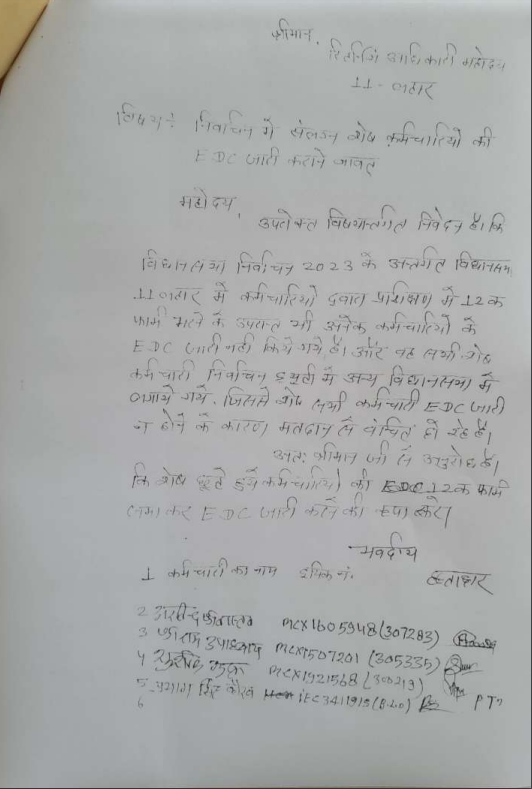 श्रीमान,
रिटर्निंग अधिकारी महोदय
11-लहार
विषय:- निर्वाचन में संलग्न शेष कर्मचारियों की
EDC जारी कराने बावत्
महोदय,
उपरोक्त विषयान्तर्गत निवेदन है। कि
विधानसभा निर्वाचन 2023 के अन्तर्गत विधानसभा
11 लहार में कर्मचारियों द्वारा प्रशिक्षण में 12क
फार्म भरने के उपरान्त भी अनेक कर्मचारियों के
EDC जारी नही किये गये है। और वह सभी शेष
कर्मचारी निर्वाचन ड्यूटी में अन्य विधानसभा में
लगाये गये. जिससे शेष सभी कर्मचारी EDC जारी
न होने के कारण मतदान से वंचित हो रहे है।
अतः श्रीमान जी से अनुरोध है।
कि शेष छूटे हुये कर्मचारियो की 12क फार्म
जमा कर EDC जारी करने की कृपा करे।
भवदीय
1 कर्मचारी का नाम इपिक नं. हस्ताक्षर
2 MCX1605948 (307283)
3 उपाध्याय MCX1507201 (305335)
4 MCX1921568
5 सिंह IEC3411915
6